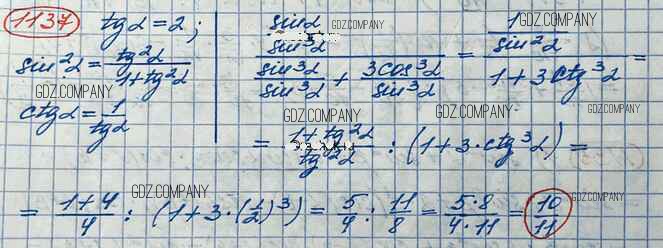 1137 tgα = 2;
sin²α = tg²α / (1 + tg²α)
ctgα = 1 / tgα
(sinα / sin³α) / (sin³α / sin³α + 3cos³α / sin³α) = (1 / sin²α) / (1 + 3ctg³α) =
= (1 + tg²α) / tg²α : (1 + 3·ctg³α) =
= (1 + 4) / 4 : (1 + 3·(1/2)³) = 5/4 : 11/8 = 5·8 / 4·11 = 10/11
GDZ.COMPANY
GDZ.COMPANY
GDZ.COMPANY
GDZ.COMPANY
GDZ.COMPANY
GDZ.COMPANY
GDZ.COMPANY
GDZ.COMPANY
GDZ.COMPANY
GDZ.COMPANY